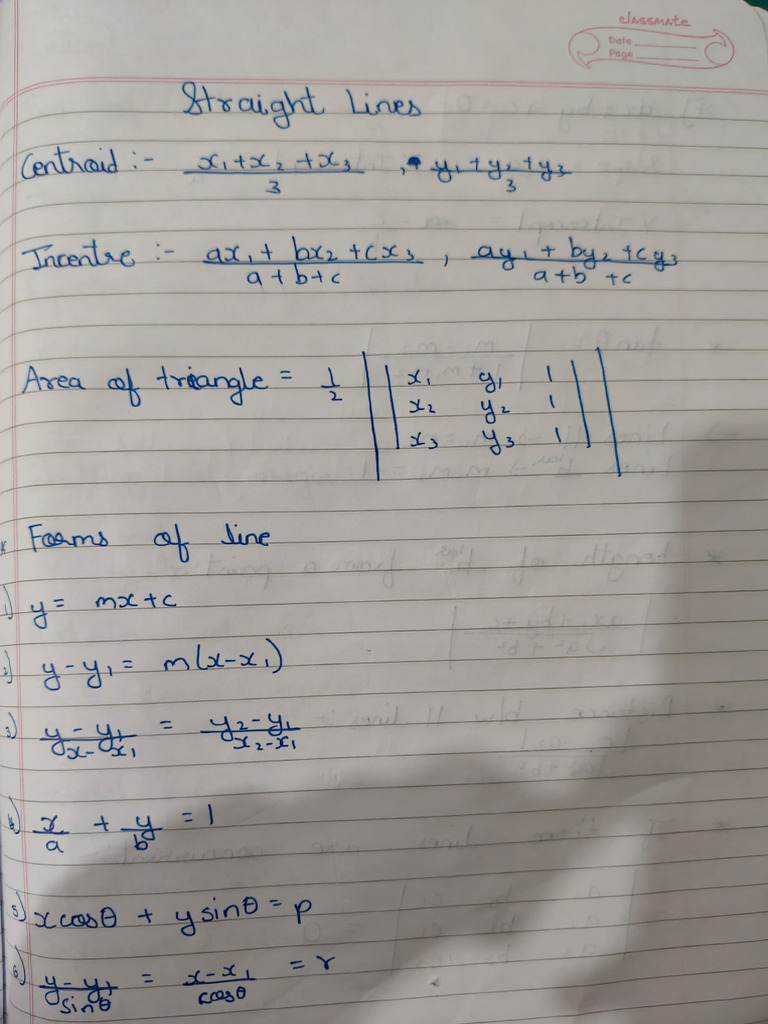 classmate
Date
Page
Straight Lines
Centroid :- (x₁+x₂+x₃)/3 , (y₁+y₂+y₃)/3
Incentre :- (ax₁+bx₂+cx₃)/(a+b+c) , (ay₁+by₂+cy₃)/(a+b+c)
Area of triangle = 1/2 | | x₁ y₁ 1 | |
x₂ y₂ 1
x₃ y₃ 1
* Forms of line
1) y = mx+c
2) y-y₁ = m(x-x₁)
3) (y-y₁)/(x-x₁) = (y₂-y₁)/(x₂-x₁)
4) x/a + y/b = 1
5) xcosθ + ysinθ = p
6) (y-y₁)/sinθ = (x-x₁)/cosθ = r